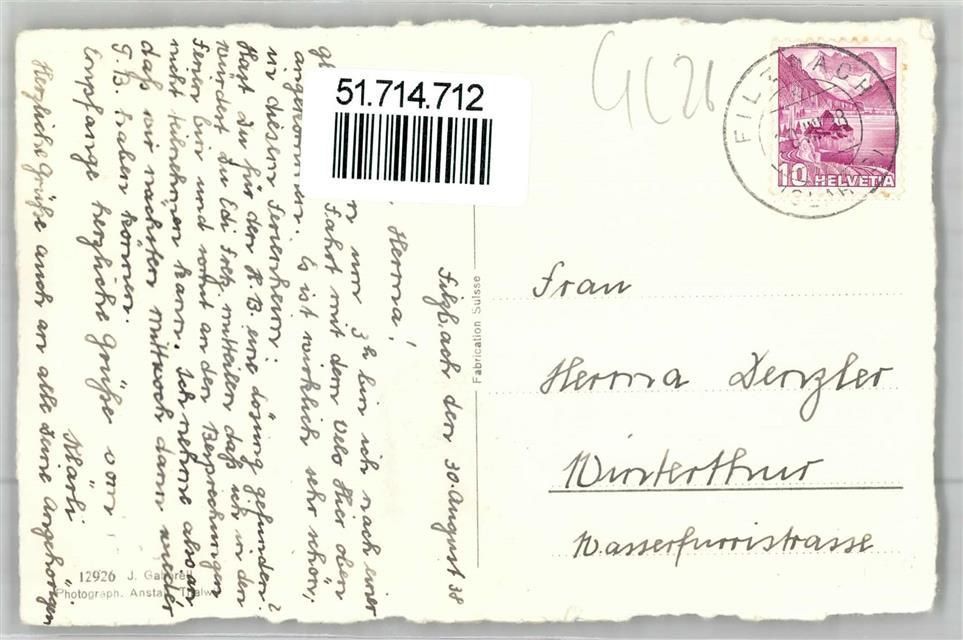 51.714.712
GL 26
FILZBACH
10 HELVETIA
Filzbach den 30. August 38
Herma!
um 3h bin ich nach einer
Fahrt mit dem Velo Hier oben
angekommen. Es ist wirklich sehr schön,
in diesem Ferienheim!
Hast Du für den K.B. eine Lösung gefunden?
würdest Du Edi Frey. mitteilen daß ich in den
Ferien bin und somit an den Besprechungen
nicht teilnehmen kann. Ich nehme also an
daß wir nächsten Mittwoch dann wieder
G.B. haben können.
Empfange herzliche Grüße vom
Klärli
Herzliche Grüße auch an alle Deine Angehörigen
Fabrication Suisse
Frau
Herma Denzler
Winterthur
Wasserfurristrasse
12926 J. Gaberell
Photograph. Anstalt Thalwil